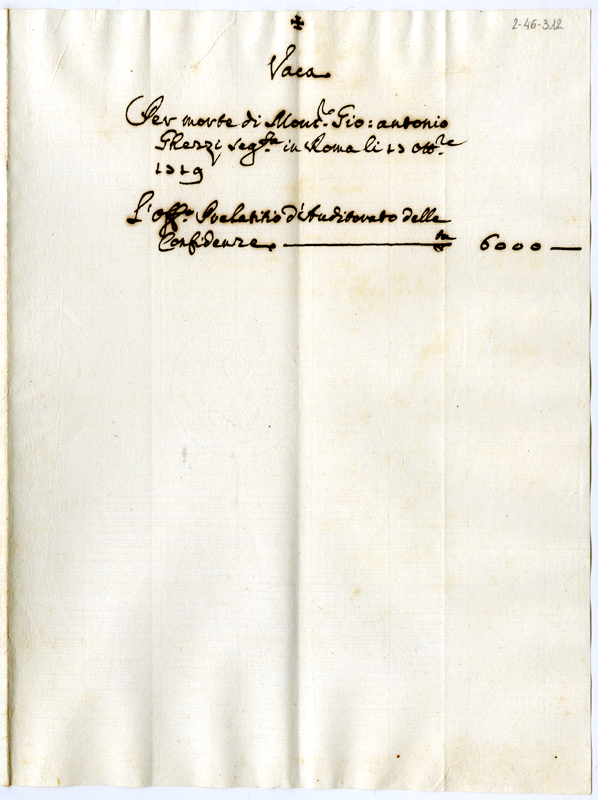 ✠
2-46-312
Vaca
Per morte di Mons.r Gio: antonio
Ghezzi seg.ta in Roma li 13 ott.re
1719
L'Off.o Prelatitio d'Auditorato delle
Confidenze. — 6000 —